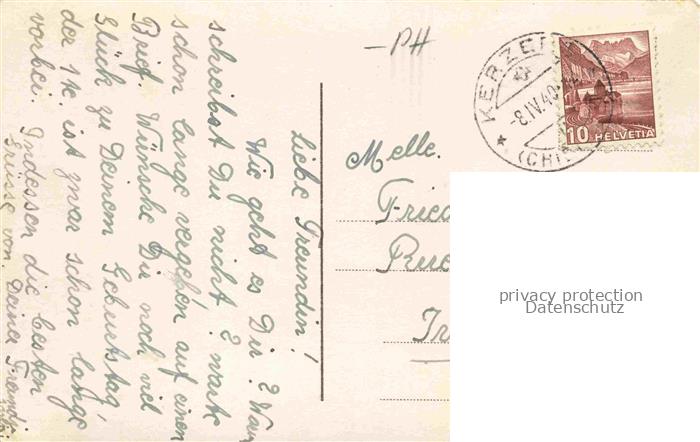 Liebe Freundin!
Wie geht es Dir? War
schreibst Du nicht? warte
schon lange vergeben auf einen
Brief. Wünsche Dir noch viel
Glück zu Deinem Geburtstag,
der 1K. ist zwar schon lange
vorbei. Indessen die besten
Grüsse von Deiner Freundi
-PH
KERZE
-8.IV.40
(CHI
10 HELVETIA
Melle.
Fried
privacy protection
Datenschutz